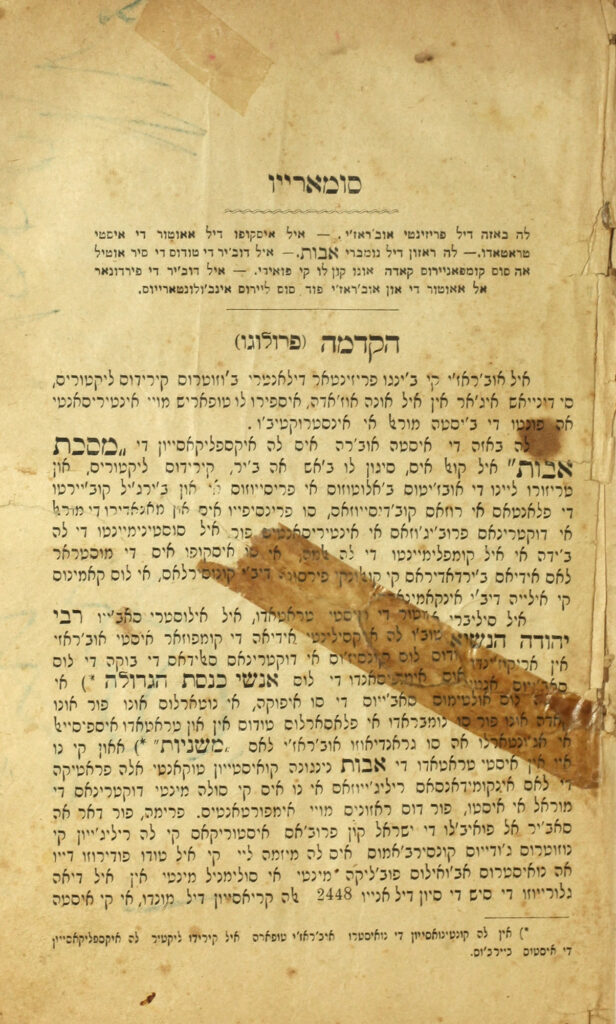 סומארייו
לה באזה דיל פריזינטי אוב׳ראז׳י. — איל איסקופו דיל אאוטור די איסטי
טראטאדו. — לה ראזון דיל נומברי אבות. — איל דוב׳יר די טודוס די סיר אוטיל
אה סוס קומפאניירוס קאדה אונו קון לו קי פואידי. — איל דוב׳יר די פירדונאר
אל אאוטור די און אוב׳ראז׳י פור סוס ליירוס אינב׳ולונטארייוס.
הקדמה (פרולוגו)
איל אוב׳ראז׳י קי ב׳ינגו פריזינטאר דילאנטרי ב׳וזוטרוס קירידוס ליקטוריס,
סי דונייאש איג׳אר אין איל אונה אוז׳אדה, איספירו לו טופאריש מויי אינטיריסאנטי
אה פונטו די ב׳יסטה מוראל אי אינסטרוקטיב׳ו.
לה באזה די איסטה אוב׳רה איס לה איקספליקאסייון די „מסכת
אבות” איל קואל איס, סיגון לו ב׳אש אה ב׳יר, קירידוס ליקטוריס, און
טריזורו ליינו די אוב׳יטוס ב׳אלוטוזוס אי פריסייוזוס אי און ב׳ירג׳יל קוב׳יירטו
די פלאנטאס אי רוזאס קוב׳דיסייוזאס, סו פרינסיפייו איס און מאנאדירו די מוראל
אי דוקטרינאס פרוב׳יג׳וזאס אי אינטיריסאנטיס פור איל סוסטינימיינטו די לה
ב׳ידה אי איל קומפלימיינטו די לה אלמה, אי סו איסקופו איס די מוסטראר
לאס אידיאס ב׳ירדאדיראס קי קואלקי פירסונה דיב׳י קונסירלאס, אי לוס קאמינוס
קי אילייה דיב׳י אינקאמינארסי.
איל סיליברי אאוטור די איסטי טראטאדו, איל אילוסטרי סאב׳ייו רבי
יהודה הנשיא טוב׳ו לה איקסילינטי אידיאה די קומפוזאר איסטי אוב׳ראז׳י
אין אריקוז׳ינדו טודוס לוס קונסיז׳וס אי דוקטרינאס סאלידאס די בוקה די לוס
סאב׳ייוס אנטיגוס איס אימפיסאנדו די לוס אנשי כנסת הגדולה *) אי
לוס אולטימוס סאב׳ייוס די סו איפוקה, אי נוטארלוס אונו פור אונו
קאדה אונו פור סו נומבראדו אי פלאסארלוס טודוס אין און טראטאדו איספיסייאל
אי אג׳ונטארלו אה סו גראנדיאוזו אוב׳ראז׳י לאס „משניות” *) אאון קי נו
איי אין איסטי טראטאדו די אבות נינגונה קואיסטיון טוקאנטי אלה פראטיקה
די לאס אינקומידאנסאס ריליג׳ייוזאס אי נו איס קי סולה מינטי דוקטרינאס די
מוראל אי איסטו, פור דוס ראזונים מויי אימפורטאנטיס. פרימה, פור דאר אה
סאב׳יר אל פואיב׳לו די ישראל קון פרוב׳אס איסטוריקאס קי לה ריליג׳ייון קי
נוזוטרוס ג׳ודייוס קונסירב׳אמוס איס לה מיזמה ליי קי איל טודו פודירוזו דייו
אה נואיסטרוס אבואילוס פוב׳ליקה מינטי אי סולימניל מינטי אין איל דיאה
גלורייוזו די סיש די סיון דיל אנייו 2448 לה קריאסייון דיל מונדו, אי קי איסטה
*) אין לה קונטינואסייון די נואיסטרו איב׳ראז׳י טופארה איל קירידו ליקטור לה איקספליקאסייון
די איסטוס ביירב׳וס.